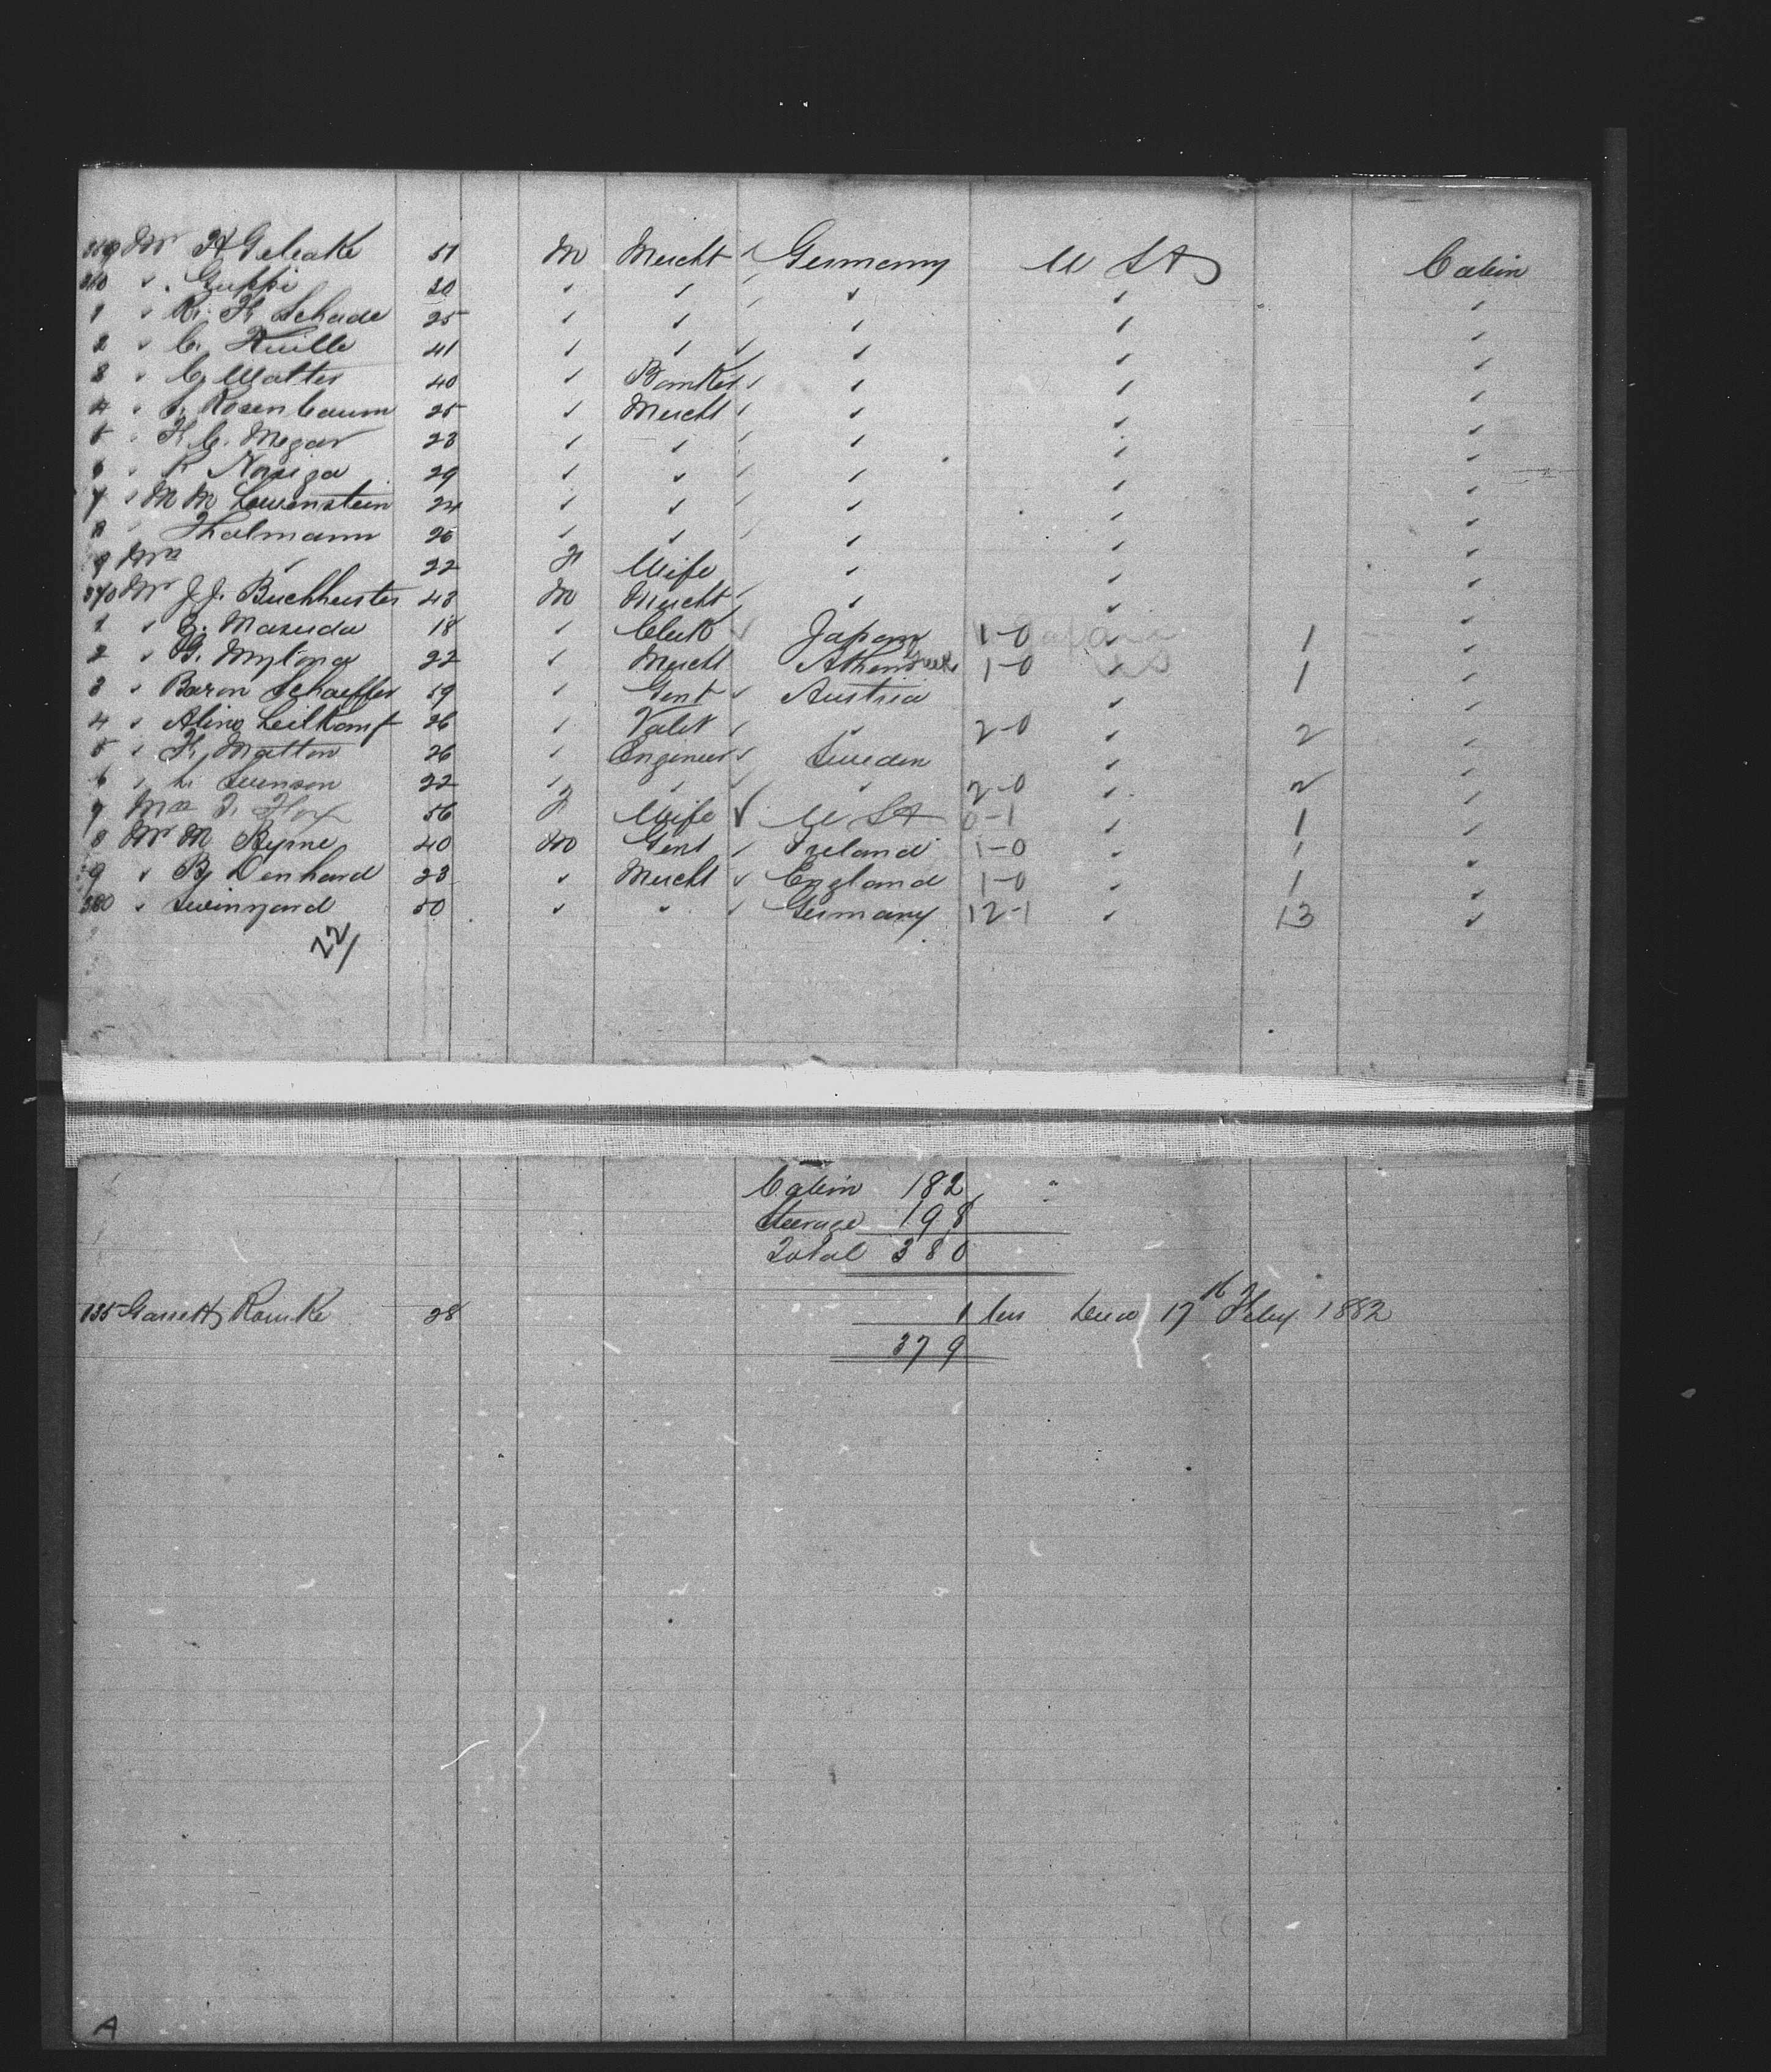 359 Mr H Geleake 51 M Mercht ✓ Germany U St Cabin
360 ✓ Guppi 30 ✓ ✓ ✓ ✓ ✓ ✓
1 ✓ R. H Schade 25 ✓ ✓ ✓ ✓ ✓ ✓
2 ✓ C. Huille 41 ✓ ✓ ✓ ✓ ✓ ✓
3 ✓ C. Walter 40 ✓ Banker ✓ ✓ ✓ ✓
4 ✓ Rosenbaum 25 ✓ Mercht ✓ ✓ ✓ ✓
5 ✓ H. C. Megar 23 ✓ ✓ ✓ ✓ ✓ ✓
6 ✓ 29 ✓ ✓ ✓ ✓ ✓ ✓
7 ✓ M M Lowenstein 24 ✓ ✓ ✓ ✓ ✓ ✓
8 ✓ Thalmann 26 ✓ ✓ ✓ ✓ ✓ ✓
9 Mrs ✓ 22 F Wife ✓ ✓ ✓
370 Mr J. J. Buchheister 43 M Mercht ✓ ✓ ✓ ✓
1 ✓ Masuda 18 ✓ Clerk ✓ Japan 1-0 ✓ 1 ✓
2 ✓ G. Mylona 22 ✓ Mercht Athens Greece 1-0 1 ✓
3 ✓ Baron Schaeffer 59 ✓ Gent ✓ Austria ✓ ✓
4 ✓ Leitkamf 26 ✓ Valet ✓ ✓ 2-0 ✓ 2 ✓
5 ✓ H. Matton 26 ✓ Engineer ✓ Sweden ✓ ✓
6 ✓ L. Svenson 22 ✓ ✓ ✓ ✓ 2-0 ✓ 2 ✓
7 Mrs F. Hoy 56 F Wife ✓ U St 0-1 ✓ 1 ✓
8 Mr M Byrne 40 M Gent ✓ Ireland 1-0 ✓ 1 ✓
9 ✓ B. Denhard 23 ✓ Mercht ✓ England 1-0 ✓ 1 ✓
380 ✓ Swinyard 50 ✓ ✓ ✓ Germany 12-1 ✓ 13 ✓
22/
Cabin 182
Steerage 198
Total 380
135 Garrett Romke 28 1 Died 17th Feby 1882
379
A